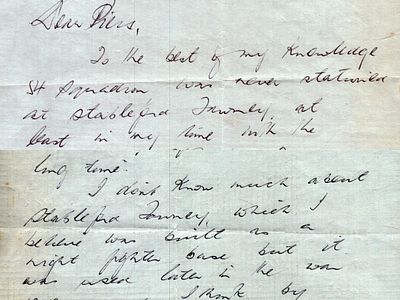 Dear Piers,
To the best of my knowledge
54 Squadron was never stationed
at Stableford Tawney, at
least in my time with the
I don't know much about
Stableford Tawney, which I
believe was built as a
night fighter base but it
was used later in the war
I think by